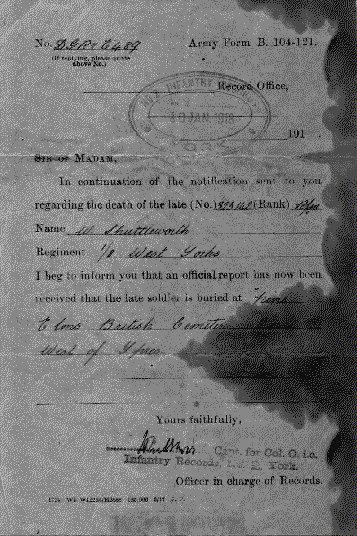 No. Army Form B. 104-121.
(If replying, please quote
above No.)
Record Office,
INFANTRY
JAN 1918
191
SIR OR MADAM,
In continuation of the notification sent to you
regarding the death of the late (No.) (Rank)
Name W. Shuttleworth
Regiment 1/8 West Yorks
I beg to inform you that an official report has now been
received that the late soldier is buried at
Elms British Cemetery
West of Ypres
Yours faithfully,
Capt. for Col. O. i.c.
Infantry Records, York.
Officer in charge of Records.